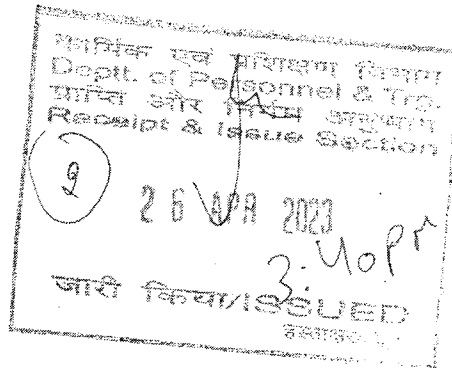 कार्मिक एवं प्रशिक्षण विभाग
Deptt. of Personnel & Trg.
प्राप्ति और निर्गम अनुभाग
Receipt & Issue Section
9
26 APR 2023
3:40 PM
जारी किया/ISSUED
हस्ताक्षर